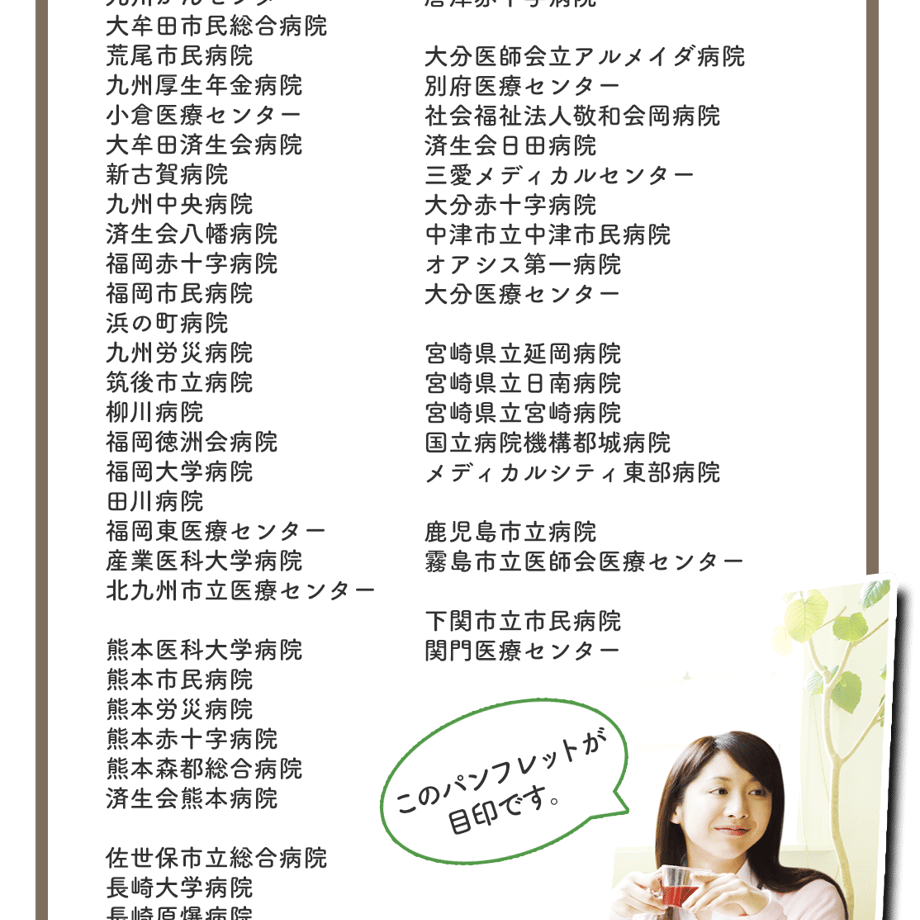 大牟田市民総合病院
荒尾市民病院
九州厚生年金病院
小倉医療センター
大牟田済生会病院
新古賀病院
九州中央病院
済生会八幡病院
福岡赤十字病院
福岡市民病院
浜の町病院
九州労災病院
筑後市立病院
柳川病院
福岡徳洲会病院
福岡大学病院
田川病院
福岡東医療センター
産業医科大学病院
北九州市立医療センター
熊本医科大学病院
熊本市民病院
熊本労災病院
熊本赤十字病院
熊本森都総合病院
済生会熊本病院
佐世保市立総合病院
長崎大学病院
長崎原爆病院
唐津赤十字病院
大分医師会立アルメイダ病院
別府医療センター
社会福祉法人敬和会岡病院
済生会日田病院
三愛メディカルセンター
大分赤十字病院
中津市立中津市民病院
オアシス第一病院
大分医療センター
宮崎県立延岡病院
宮崎県立日南病院
宮崎県立宮崎病院
国立病院機構都城病院
メディカルシティ東部病院
鹿児島市立病院
霧島市立医師会医療センター
下関市立市民病院
関門医療センター
このパンフレットが
目印です。